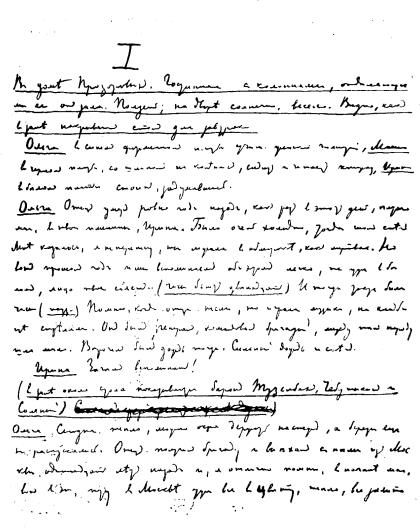 I
В доме Прозоровых. Гостиная с колоннами, отделяющими
ее от зала. Полдень; на дворе солнечно, весело. Видно, как
в зале накрывают стол для завтрака
Ольга в синем форменном платье женской гимназии, Маша
в черном платье, со шляпкой на коленях, сидит и читает книжку, Ирина
в белом платье стоит, задумавшись.
Ольга Отец умер ровно год назад, как раз в этот день, пятого
мая, в твои именины, Ирина. Было очень холодно, тогда шел снег
Мне казалось, я не переживу, ты лежала в обмороке, как мертвая. Но
вот прошел год и мы вспоминаем об этом легко, ты уже в белом
лицо твое сияет. (Часы бьют двенадцать) И тогда также били
часы (пауза) Помню, когда отца несли, то играла музыка, на кладби
ще стреляли. Он был генерал, командовал бригадой, между тем народу
шло мало. Впрочем был дождь тогда. Сильный дождь и снег.
Ирина Зачем вспоминать!
(В зале около стола показываются барон Тузенбах, Чебутыкин и
Соленый)
Ольга. Сегодня тепло, можно окна держать настежь, а березы еще
не распускались. Отец получил бригаду и выехал с нами из Моск
вы, одиннадцать лет назад и, я отлично помню, в начале мая,
вот в эту пору в Москве уже все в цвету, тепло, все залито